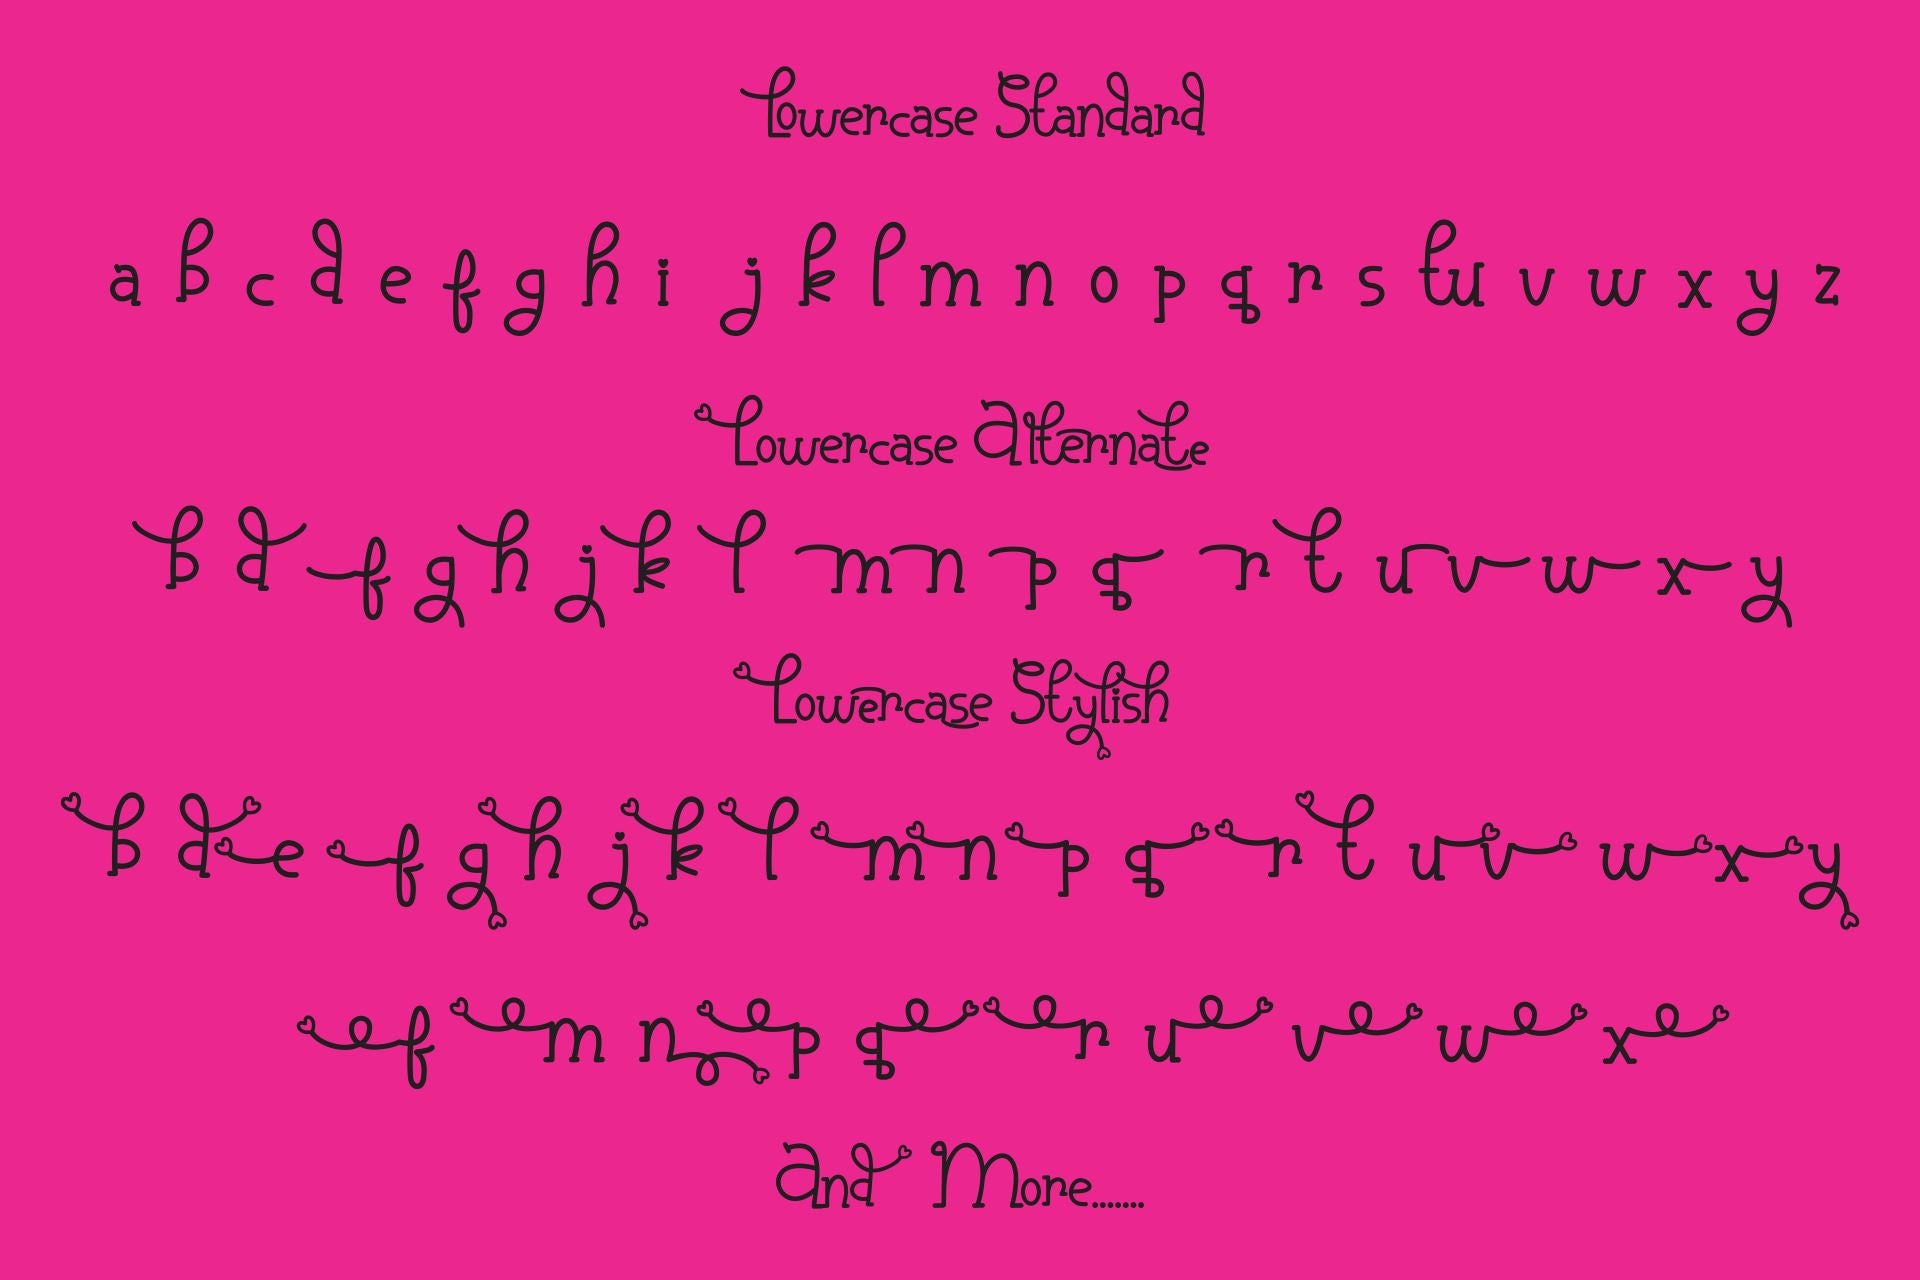 Lowercase Standard
a b c d e f g h i j k l m n o p q r s t u v w x y z
Lowercase Alternate
b d f g h j k l m n p q r t u v w x y
Lowercase Stylish
b d e f g h j k l m n p q r t u v w x y
f m n p q r u v w x
And More.......